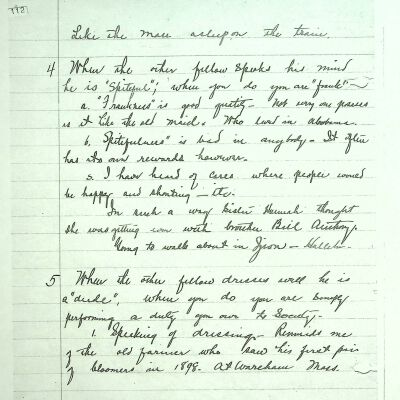 Like the man asleep on the train.
4 When the other fellow speaks his mind
he is "Spiteful"; when you do you are "frank"
a. "Frankness" is good quality - Not every one possesses
is it like the old maid. Who lived in abstinence.
b. Spitefulness is bad in anybody - It often
has its own rewards however.
I have heard of cases where people would
be happy and shouting - etc.
In such a way Sister Hannah thought
she was getting even with brother Bill Anthony.
"Going to walk about in Zion -
5 When the other fellow dresses well he is
a "dude"; when you do you are simply
performing a duty you owe to Society.
1. Speaking of dressing - Reminds me
of the old farmer who saw his first pair
of bloomers in 1898. At Wareham Mass.